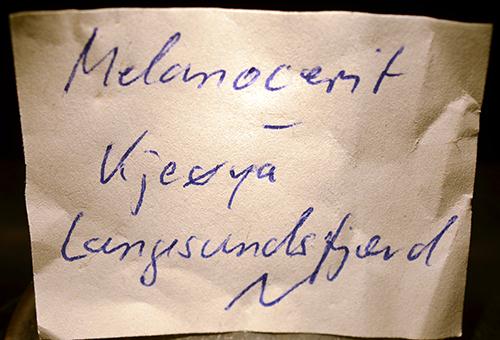 Melanocerit
–
Kjeøya
Langesundsfjord
N